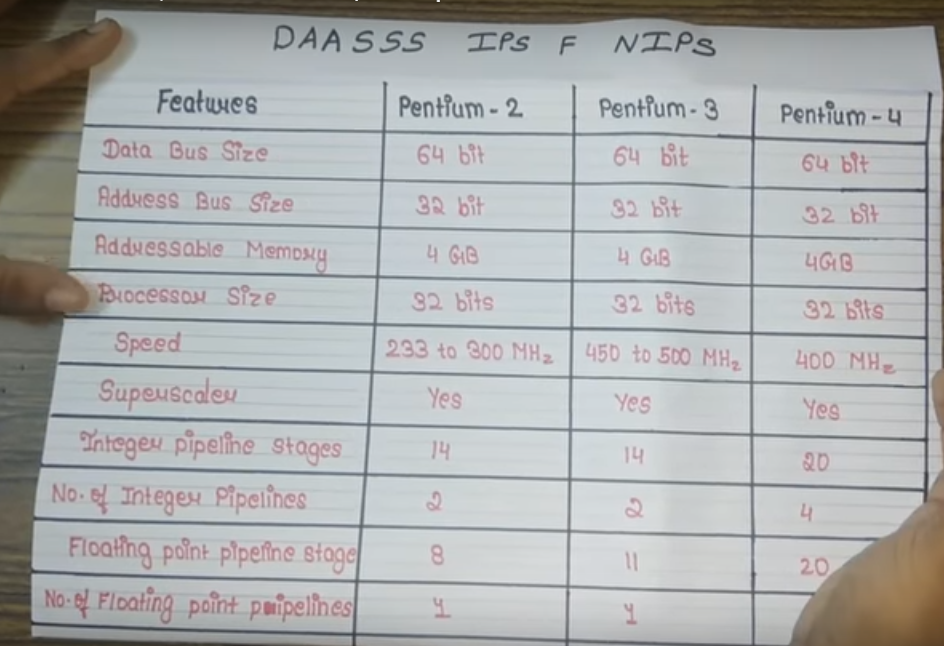 DAASSS IPS F NIPS
Features Pentium-2 Pentium-3 Pentium-4
Data Bus Size 64 bit 64 bit 64 bit
Address Bus Size 32 bit 32 bit 32 bit
Addressable Memory 4 GB 4 GB 4GB
Processor Size 32 bits 32 bits 32 bits
Speed 233 to 300 MHz 450 to 500 MHz 400 MHz
Superscaler Yes Yes Yes
Integer pipeline stages 14 14 20
No. of Integer Pipelines 2 2 4
Floating point pipeline stage 8 11 20
No. of Floating point pipelines 1 1